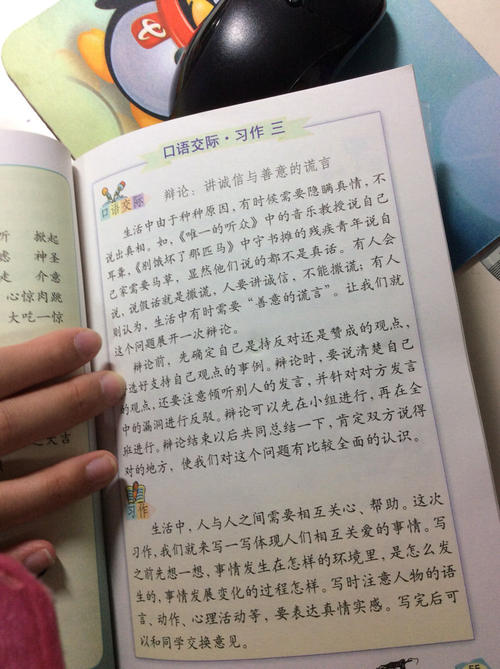 口语交际·习作 三
口语交际
辩论：讲诚信与善意的谎言
生活中由于种种原因，有时候需要隐瞒真情，不
说出真相。如，《唯一的听众》中的音乐教授说自己
耳聋，《别饿坏了那匹马》中守书摊的残疾青年说自
己家需要马草，显然他们说的都不是真话。有人会
说，说假话就是撒谎，人要讲诚信，不能撒谎；有人
则认为，生活中有时需要“善意的谎言”。让我们就
这个问题展开一次辩论。
辩论前，先确定自己是持反对还是赞成的观点，
选好支持自己观点的事例。辩论时，要说清楚自己
的观点，还要注意倾听别人的发言，并针对对方发言
中的漏洞进行反驳。辩论可以先在小组进行，再在全
班进行。辩论结束以后共同总结一下，肯定双方说得
对的地方，使我们对这个问题有比较全面的认识。
习作
生活中，人与人之间需要相互关心、帮助。这次
习作，我们就来写一写体现人们相互关爱的事情。写
之前先想一想，事情发生在怎样的环境里，是怎么发
生的，事情发展变化的过程怎样。写时注意人物的语
言、动作、心理活动等，要表达真情实感。写完后可
以和同学交换意见。
55
听 掀起
神圣
走 介意
心惊肉跳
大吃一惊
之大吉